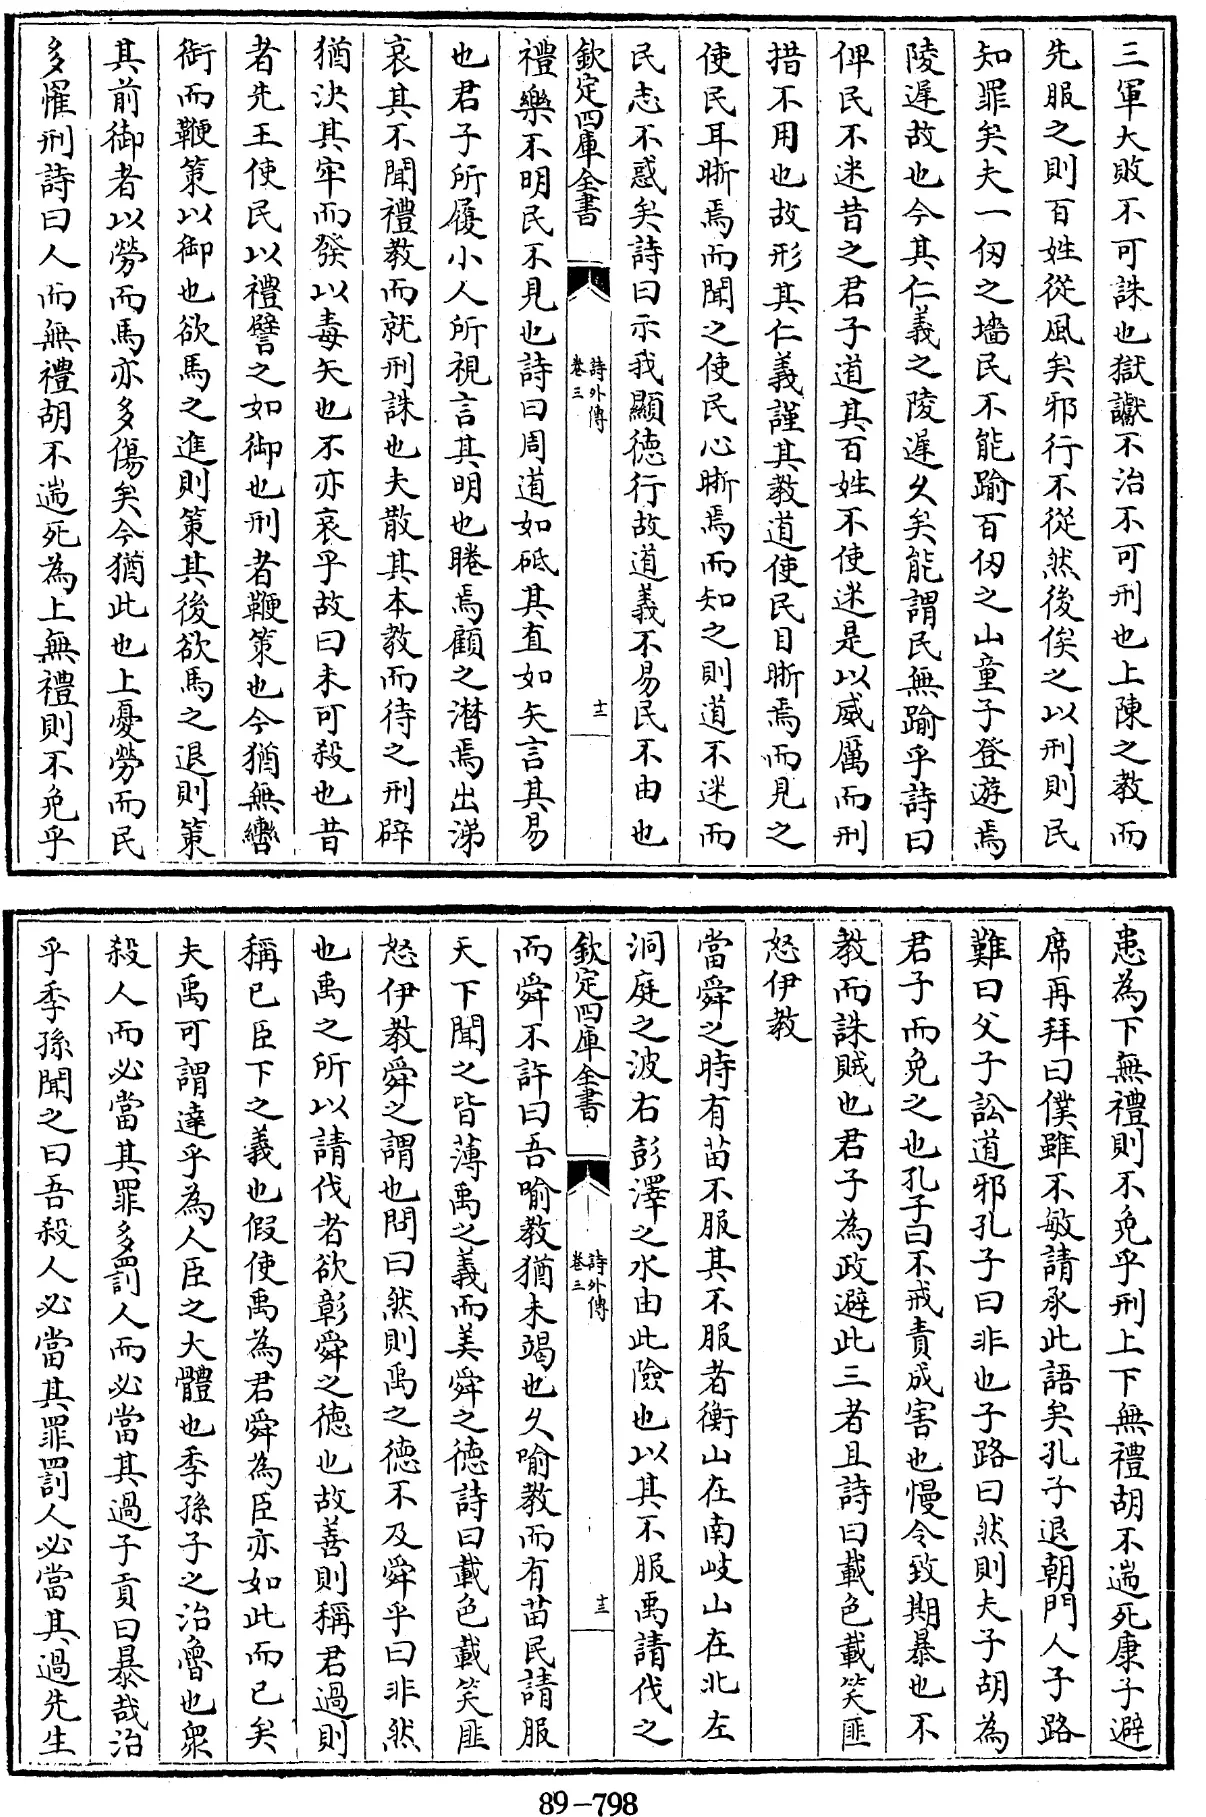 三軍大敗不可誅也獄讞不治不可刑也上陳之教而
先服之則百姓從風矣邪行不從然後俟之以刑則民
知罪矣夫一仞之墻民不能踰百仞之山童子登遊焉
陵遲故也今其仁義之陵遲久矣能謂民無踰乎詩曰
俾民不迷昔之君子道其百姓不使迷是以威厲而刑
措不用也故形其仁義謹其教道使民目晣焉而見之
使民耳晣焉而聞之使民心晣焉而知之則道不迷而
民志不惑矣詩曰示我顯德行故道義不易民不由也
欽定四庫全書
詩外傳
卷三
十二
禮樂不明民不見也詩曰周道如砥其直如矢言其易
也君子所履小人所視言其明也睠焉顧之潸焉出涕
哀其不聞禮教而就刑誅也夫散其本教而待之刑辟
猶決其牢而發以毒矢也不亦哀乎故曰未可殺也昔
者先王使民以禮譬之如御也刑者鞭策也今猶無轡
銜而鞭策以御也欲馬之進則策其後欲馬之退則策
其前御者以勞而馬亦多傷矣今猶此也上憂勞而民
多罹刑詩曰人而無禮胡不遄死為上無禮則不免乎
患為下無禮則不免乎刑上下無禮胡不遄死康子避
席再拜曰僕雖不敏請承此語矣孔子退朝門人子路
難曰父子訟道邪孔子曰非也子路曰然則夫子胡為
君子而免之也孔子曰不戒責成害也慢令致期暴也不
教而誅賊也君子為政避此三者且詩曰載色載笑匪
怒伊教
當舜之時有苗不服其不服者衡山在南岐山在北左
洞庭之波右彭澤之水由此險也以其不服禹請伐之
欽定四庫全書
詩外傳
卷三
十三
而舜不許曰吾喻教猶未竭也久喻教而有苗民請服
天下聞之皆薄禹之義而美舜之德詩曰載色載笑匪
怒伊教舜之謂也問曰然則禹之德不及舜乎曰非然
也禹之所以請伐者欲彰舜之德也故善則稱君過則
稱已臣下之義也假使禹為君舜為臣亦如此而已矣
夫禹可謂達乎為人臣之大體也季孫子之治魯也衆
殺人而必當其罪多罰人而必當其過子貢曰暴哉治
乎季孫聞之曰吾殺人必當其罪罰人必當其過先生
89-798